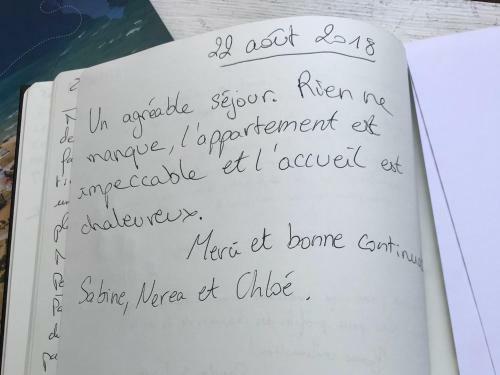 22 août 2018
Un agréable séjour. Rien ne
manque, l'appartement est
impeccable et l'accueil est
chaleureux.
Merci et bonne continua
Sabine, Nerea et Chloé.